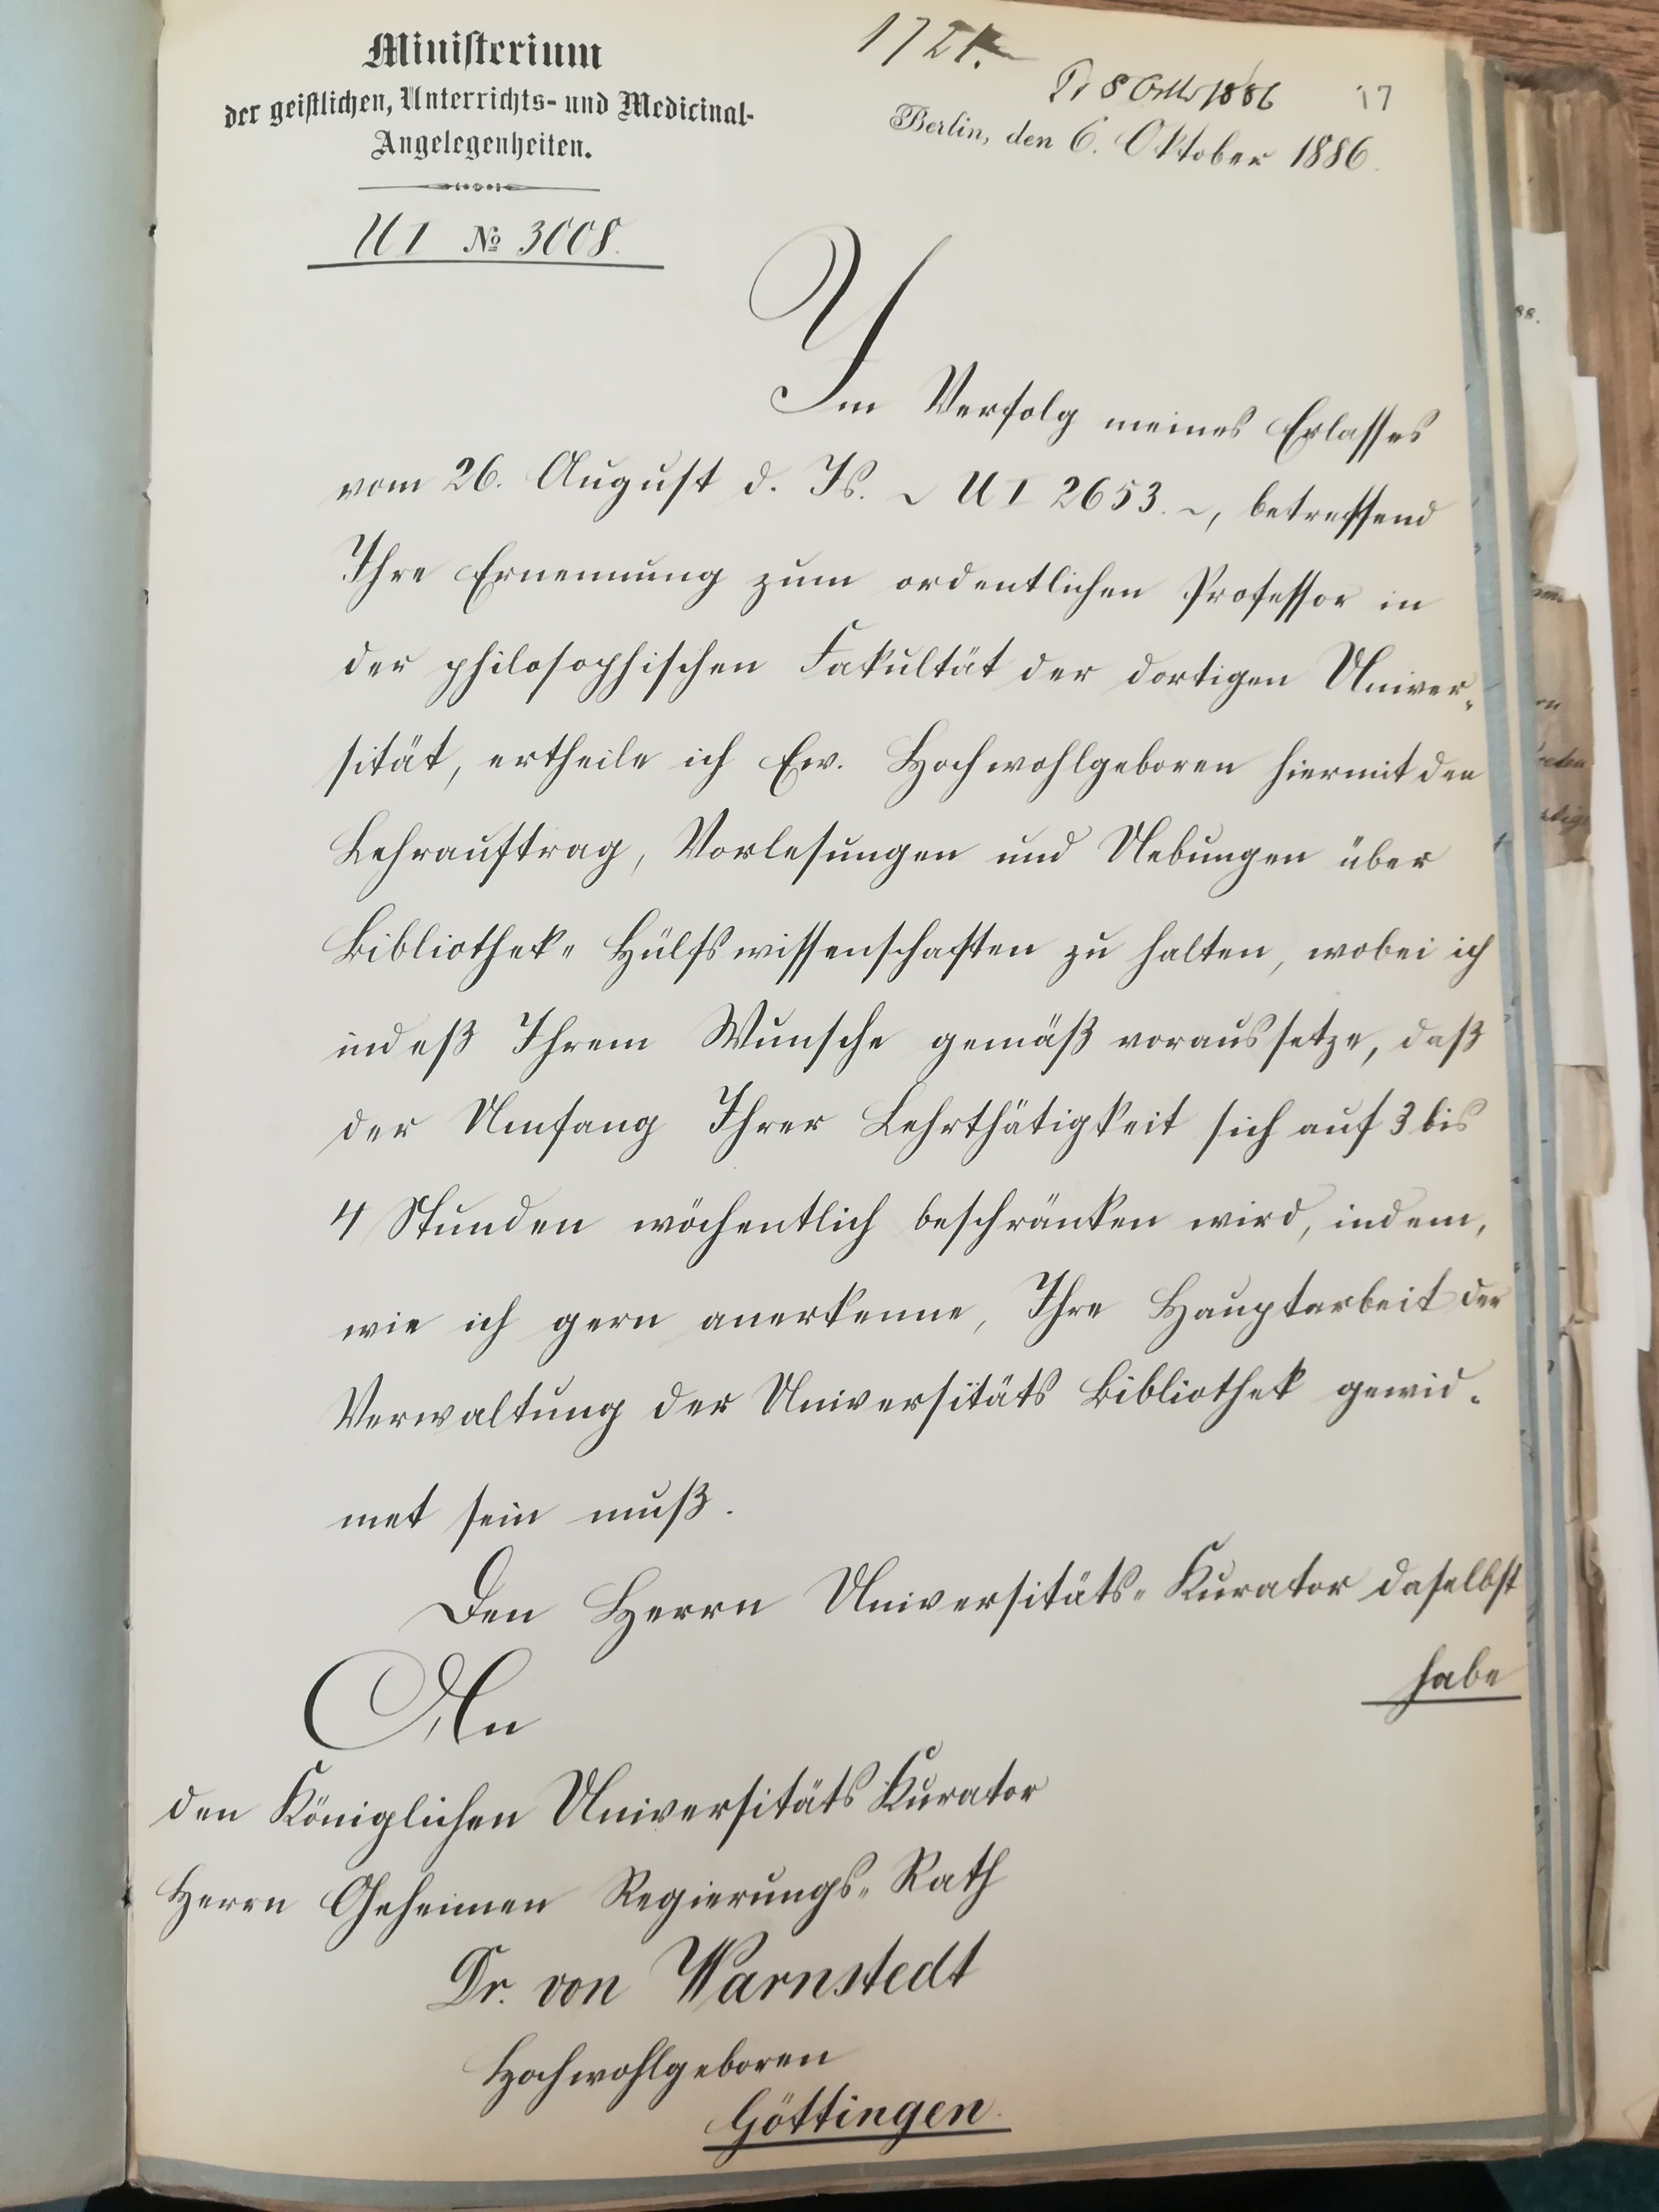 Ministerium
der geistlichen, Unterrichts- und Medicinal-
Angelegenheiten.
U I № 3008.
1721.
8 1886
17
Berlin, den 6. Oktober 1886.
Im Verfolg meines Erlasses
vom 26. August d. Js. ~ U I 2653. ~, betreffend
Ihre Ernennung zum ordentlichen Professor in
der philosophischen Fakultät der dortigen Univer-
sität, ertheile ich Ew. Hochwohlgeboren hiermit den
Lehrauftrag, Vorlesungen und Uebungen über
Bibliothek- Hülfswissenschaften zu halten, wobei ich
indeß Ihrem Wunsche gemäß voraussetze, daß
der Umfang Ihrer Lehrthätigkeit sich auf 3 bis
4 Stunden wöchentlich beschränken wird, indem,
wie ich gern anerkenne, Ihre Hauptarbeit der
Verwaltung der Universitäts Bibliothek gewid-
met sein muß.
Den Herrn Universitäts- Kurator daselbst
habe
An
den Königlichen Universitäts Kurator
Herrn Geheimen Regierungs- Rath
Dr. von Warnstedt
Hochwohlgeboren
Göttingen.